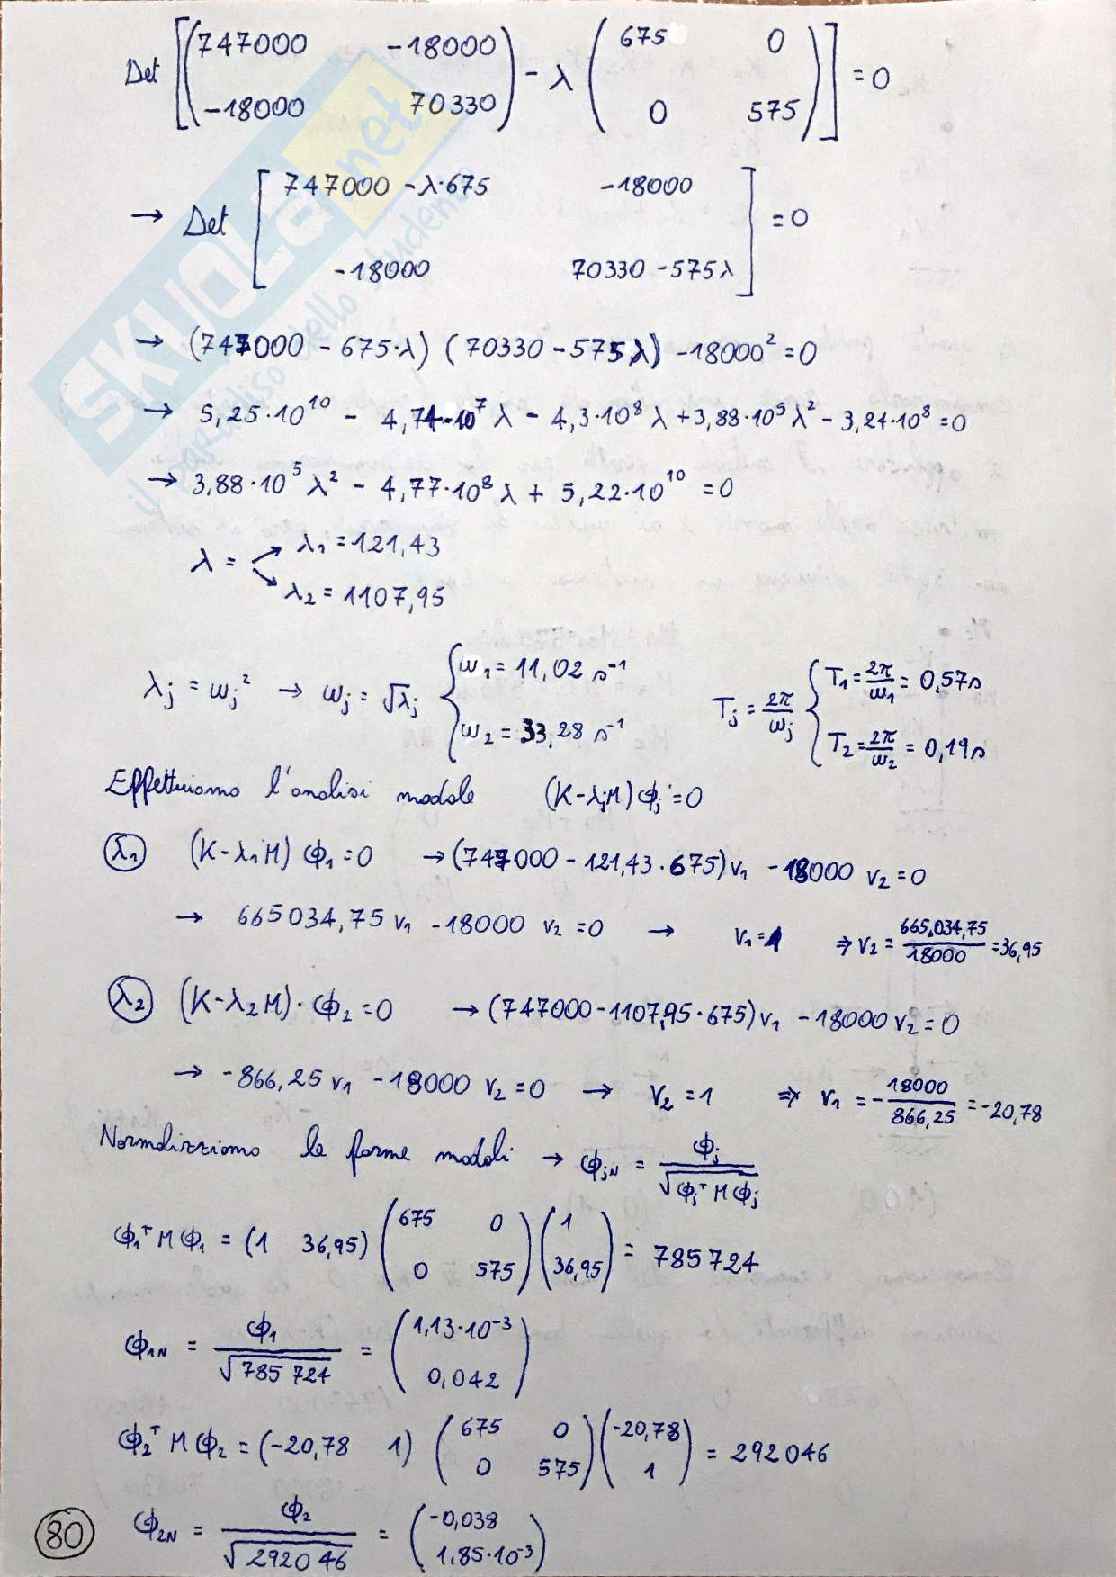 Det [(747000 -18000
-18000 70330) - λ (675 0
0 575)] = 0
→ Det [747000 - λ·675 -18000
-18000 70330 - 575λ] = 0
→ (747000 - 675·λ) (70330 - 575λ) - 18000² = 0
→ 5,25·10¹⁰ - 4,74·10⁷ λ - 4,3·10⁸ λ + 3,88·10⁵ λ² - 3,24·10⁸ = 0
→ 3,88·10⁵ λ² - 4,77·10⁸ λ + 5,22·10¹⁰ = 0
λ = λ₁ = 121,43
λ₂ = 1107,95
λj = ωj² → ωj = √λj { ω₁ = 11,02 s⁻¹
ω₂ = 33,28 s⁻¹
Tj = 2π/ωj { T₁ = 2π/ω₁ = 0,57s
T₂ = 2π/ω₂ = 0,19s
Effettuiamo l'analisi modale (K - λjM) φj = 0
λ₁ (K - λ₁M) φ₁ = 0 → (747000 - 121,43·675) v₁ - 18000 v₂ = 0
→ 665034,75 v₁ - 18000 v₂ = 0 → v₁ = 1 ⇒ v₂ = 665.034,75/18000 = 36,95
λ₂ (K - λ₂M)·φ₂ = 0 → (747000 - 1107,95·675) v₁ - 18000 v₂ = 0
→ -866,25 v₁ - 18000 v₂ = 0 → v₂ = 1 ⇒ v₁ = - 18000/866,25 = -20,78
Normalizziamo le forme modali → φjN = φj/√φjᵀ M φj
φ₁ᵀ M φ₁ = (1 36,95) (675 0
0 575) (1
36,95) = 785724
φ₁N = φ₁/√785724 = (1,13·10⁻³
0,042)
φ₂ᵀ M φ₂ = (-20,78 1) (675 0
0 575) (-20,78
1) = 292046
80 φ₂N = φ₂/√292046 = (-0,038
1,85·10⁻³)
SKUOLA.net